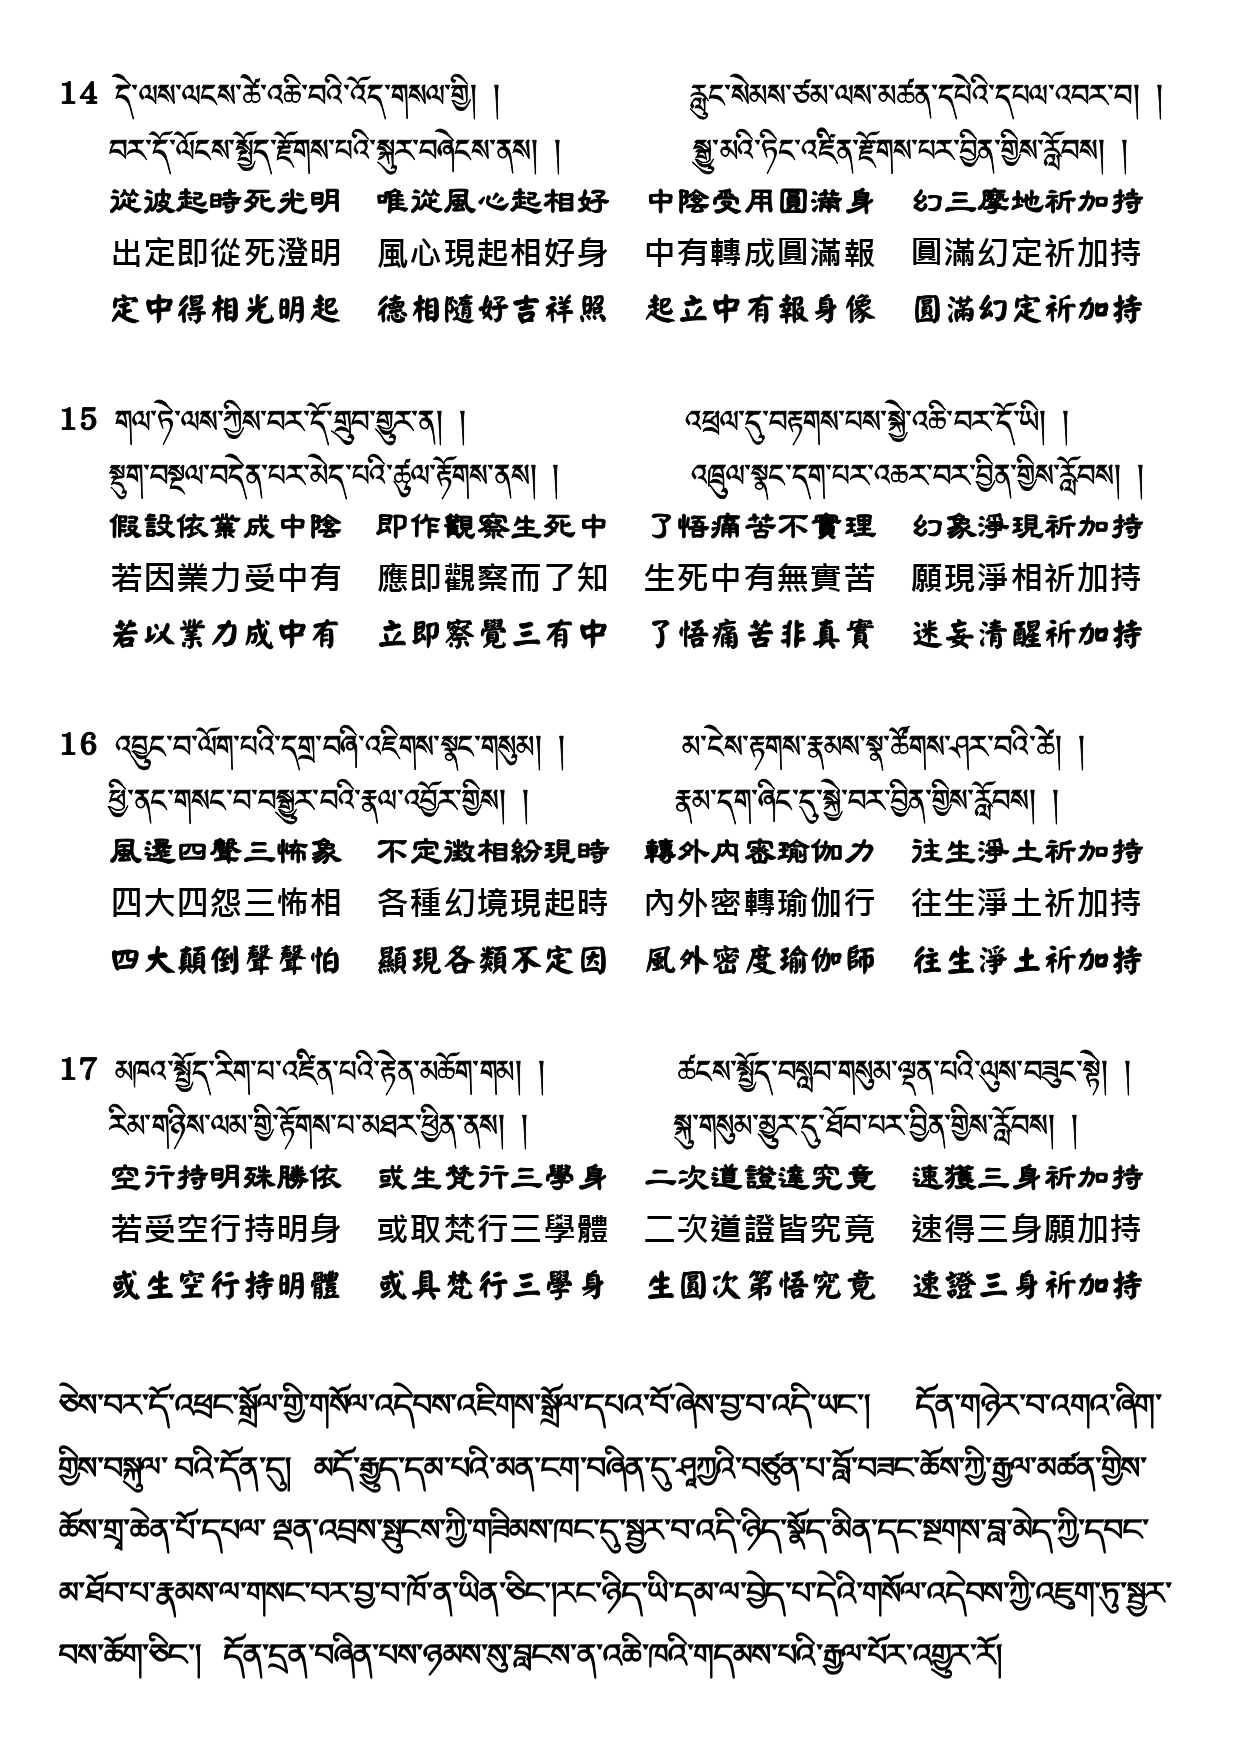 14 དེ་ལས་ལངས་ཚེ་འཆི་བའི་འོད་གསལ་གྱི། ། རླུང་སེམས་ཙམ་ལས་མཚན་དཔེའི་དཔལ་འབར་བ། །
བར་དོ་ལོངས་སྤྱོད་རྫོགས་པའི་སྐུར་བཞེངས་ནས། ། སྒྱུ་མའི་ཏིང་འཛིན་རྫོགས་པར་བྱིན་གྱིས་རློབས། །
從彼起時死光明 唯從風心起相好 中陰受用圓滿身 幻三摩地祈加持
出定即從死澄明 風心現起相好身 中有轉成圓滿報 圓滿幻定祈加持
定中得相光明起 德相隨好吉祥照 起立中有報身像 圓滿幻定祈加持
15 གལ་ཏེ་ལས་ཀྱིས་བར་དོ་གྲུབ་གྱུར་ན། ། འཕྲལ་དུ་བརྟགས་པས་སྐྱེ་འཆི་བར་དོ་ཡི། །
སྡུག་བསྔལ་བདེན་པར་མེད་པའི་ཚུལ་རྟོགས་ནས། ། འཁྲུལ་སྣང་དག་པར་འཆར་བར་བྱིན་གྱིས་རློབས། །
假設依業成中陰 即作觀察生死中 了悟痛苦不實理 幻象淨現祈加持
若因業力受中有 應即觀察而了知 生死中有無實苦 願現淨相祈加持
若以業力成中有 立即察覺三有中 了悟痛苦非真實 迷妄清醒祈加持
16 འབྱུང་བ་ལོག་པའི་དགྲ་བཞི་འཇིགས་སྣང་གསུམ། ། མ་ངེས་རྟགས་རྣམས་སྣ་ཚོགས་ཤར་བའི་ཚེ། །
ཕྱི་ནང་གསང་བ་བསྒྱུར་བའི་རྣལ་འབྱོར་གྱིས། ། རྣམ་དག་ཞིང་དུ་སྐྱེ་བར་བྱིན་གྱིས་རློབས། །
風還四聲三怖象 不定徵相紛現時 轉外內密瑜伽力 往生淨土祈加持
四大四怨三怖相 各種幻境現起時 內外密轉瑜伽行 往生淨土祈加持
四大顛倒聲聲怕 顯現各類不定因 風外密度瑜伽師 往生淨土祈加持
17 མཁའ་སྤྱོད་རིག་པ་འཛིན་པའི་རྟེན་མཆོག་གམ། ། ཚངས་སྤྱོད་བསླབ་གསུམ་ལྡན་པའི་ལུས་བཟུང་སྟེ། །
རིམ་གཉིས་ལམ་གྱི་རྟོགས་པ་མཐར་ཕྱིན་ནས། ། སྐུ་གསུམ་མྱུར་དུ་ཐོབ་པར་བྱིན་གྱིས་རློབས། །
空行持明殊勝依 或生梵行三學身 二次道證達究竟 速獲三身祈加持
若受空行持明身 或取梵行三學體 二次道證皆究竟 速得三身願加持
或生空行持明體 或具梵行三學身 生圓次第悟究竟 速證三身祈加持
ཅེས་བར་དོ་འཕྲང་སྒྲོལ་གྱི་གསོལ་འདེབས་འཇིགས་སྒྲོལ་དཔའ་བོ་ཞེས་བྱ་བ་འདི་ཡང་། དོན་གཉེར་བ་འགའ་ཞིག་
གྱིས་བསྐུལ་ བའི་དོན་དུ། མདོ་རྒྱུད་དམ་པའི་མན་ངག་བཞིན་དུ་ཤཱཀྱའི་བཙུན་པ་བློ་བཟང་ཆོས་ཀྱི་རྒྱལ་མཚན་གྱིས་
ཆོས་གྲྭ་ཆེན་པོ་དཔལ་ ལྡན་འབྲས་སྤུངས་ཀྱི་གཟིམས་ཁང་དུ་སྦྱར་བ་འདི་ཉིད་སྣོད་མིན་དང་སྔགས་བླ་མེད་ཀྱི་དབང་
མ་ཐོབ་པ་རྣམས་ལ་གསང་བར་བྱ་བ་ཁོ་ན་ཡིན་ཅིང་།རང་ཉིད་ཡི་དམ་ལ་བྱེད་པ་དེའི་གསོལ་འདེབས་ཀྱི་འཇུག་ཏུ་སྦྱར་
བས་ཆོག་ཅིང་། དོན་དྲན་བཞིན་པས་ཉམས་སུ་བླངས་ན་འཆི་ཁའི་གདམས་པའི་རྒྱལ་པོར་འགྱུར་རོ།